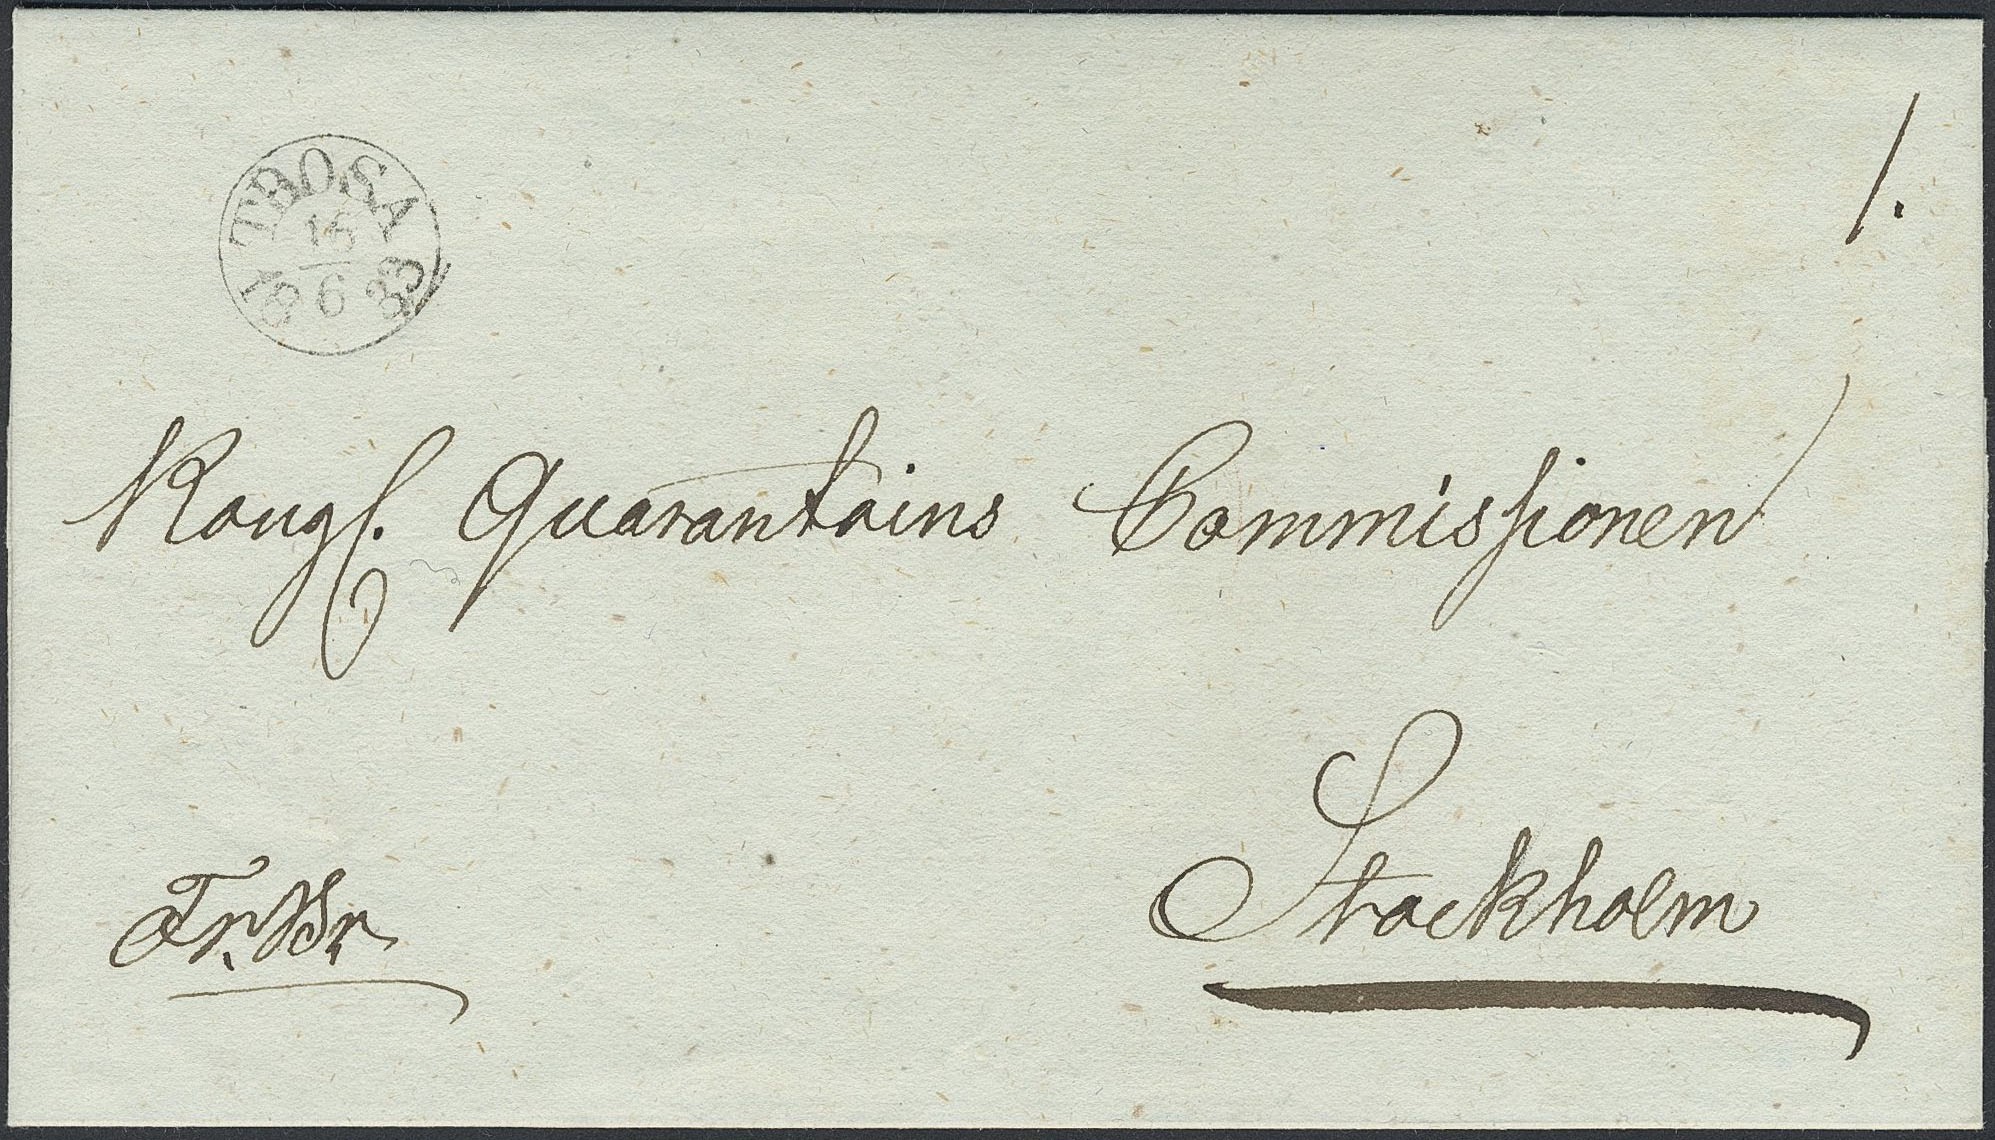 TROSA
16
6
18 33
1.
Kongl. Quarantains Commissionen
Stockholm
Fr. Br